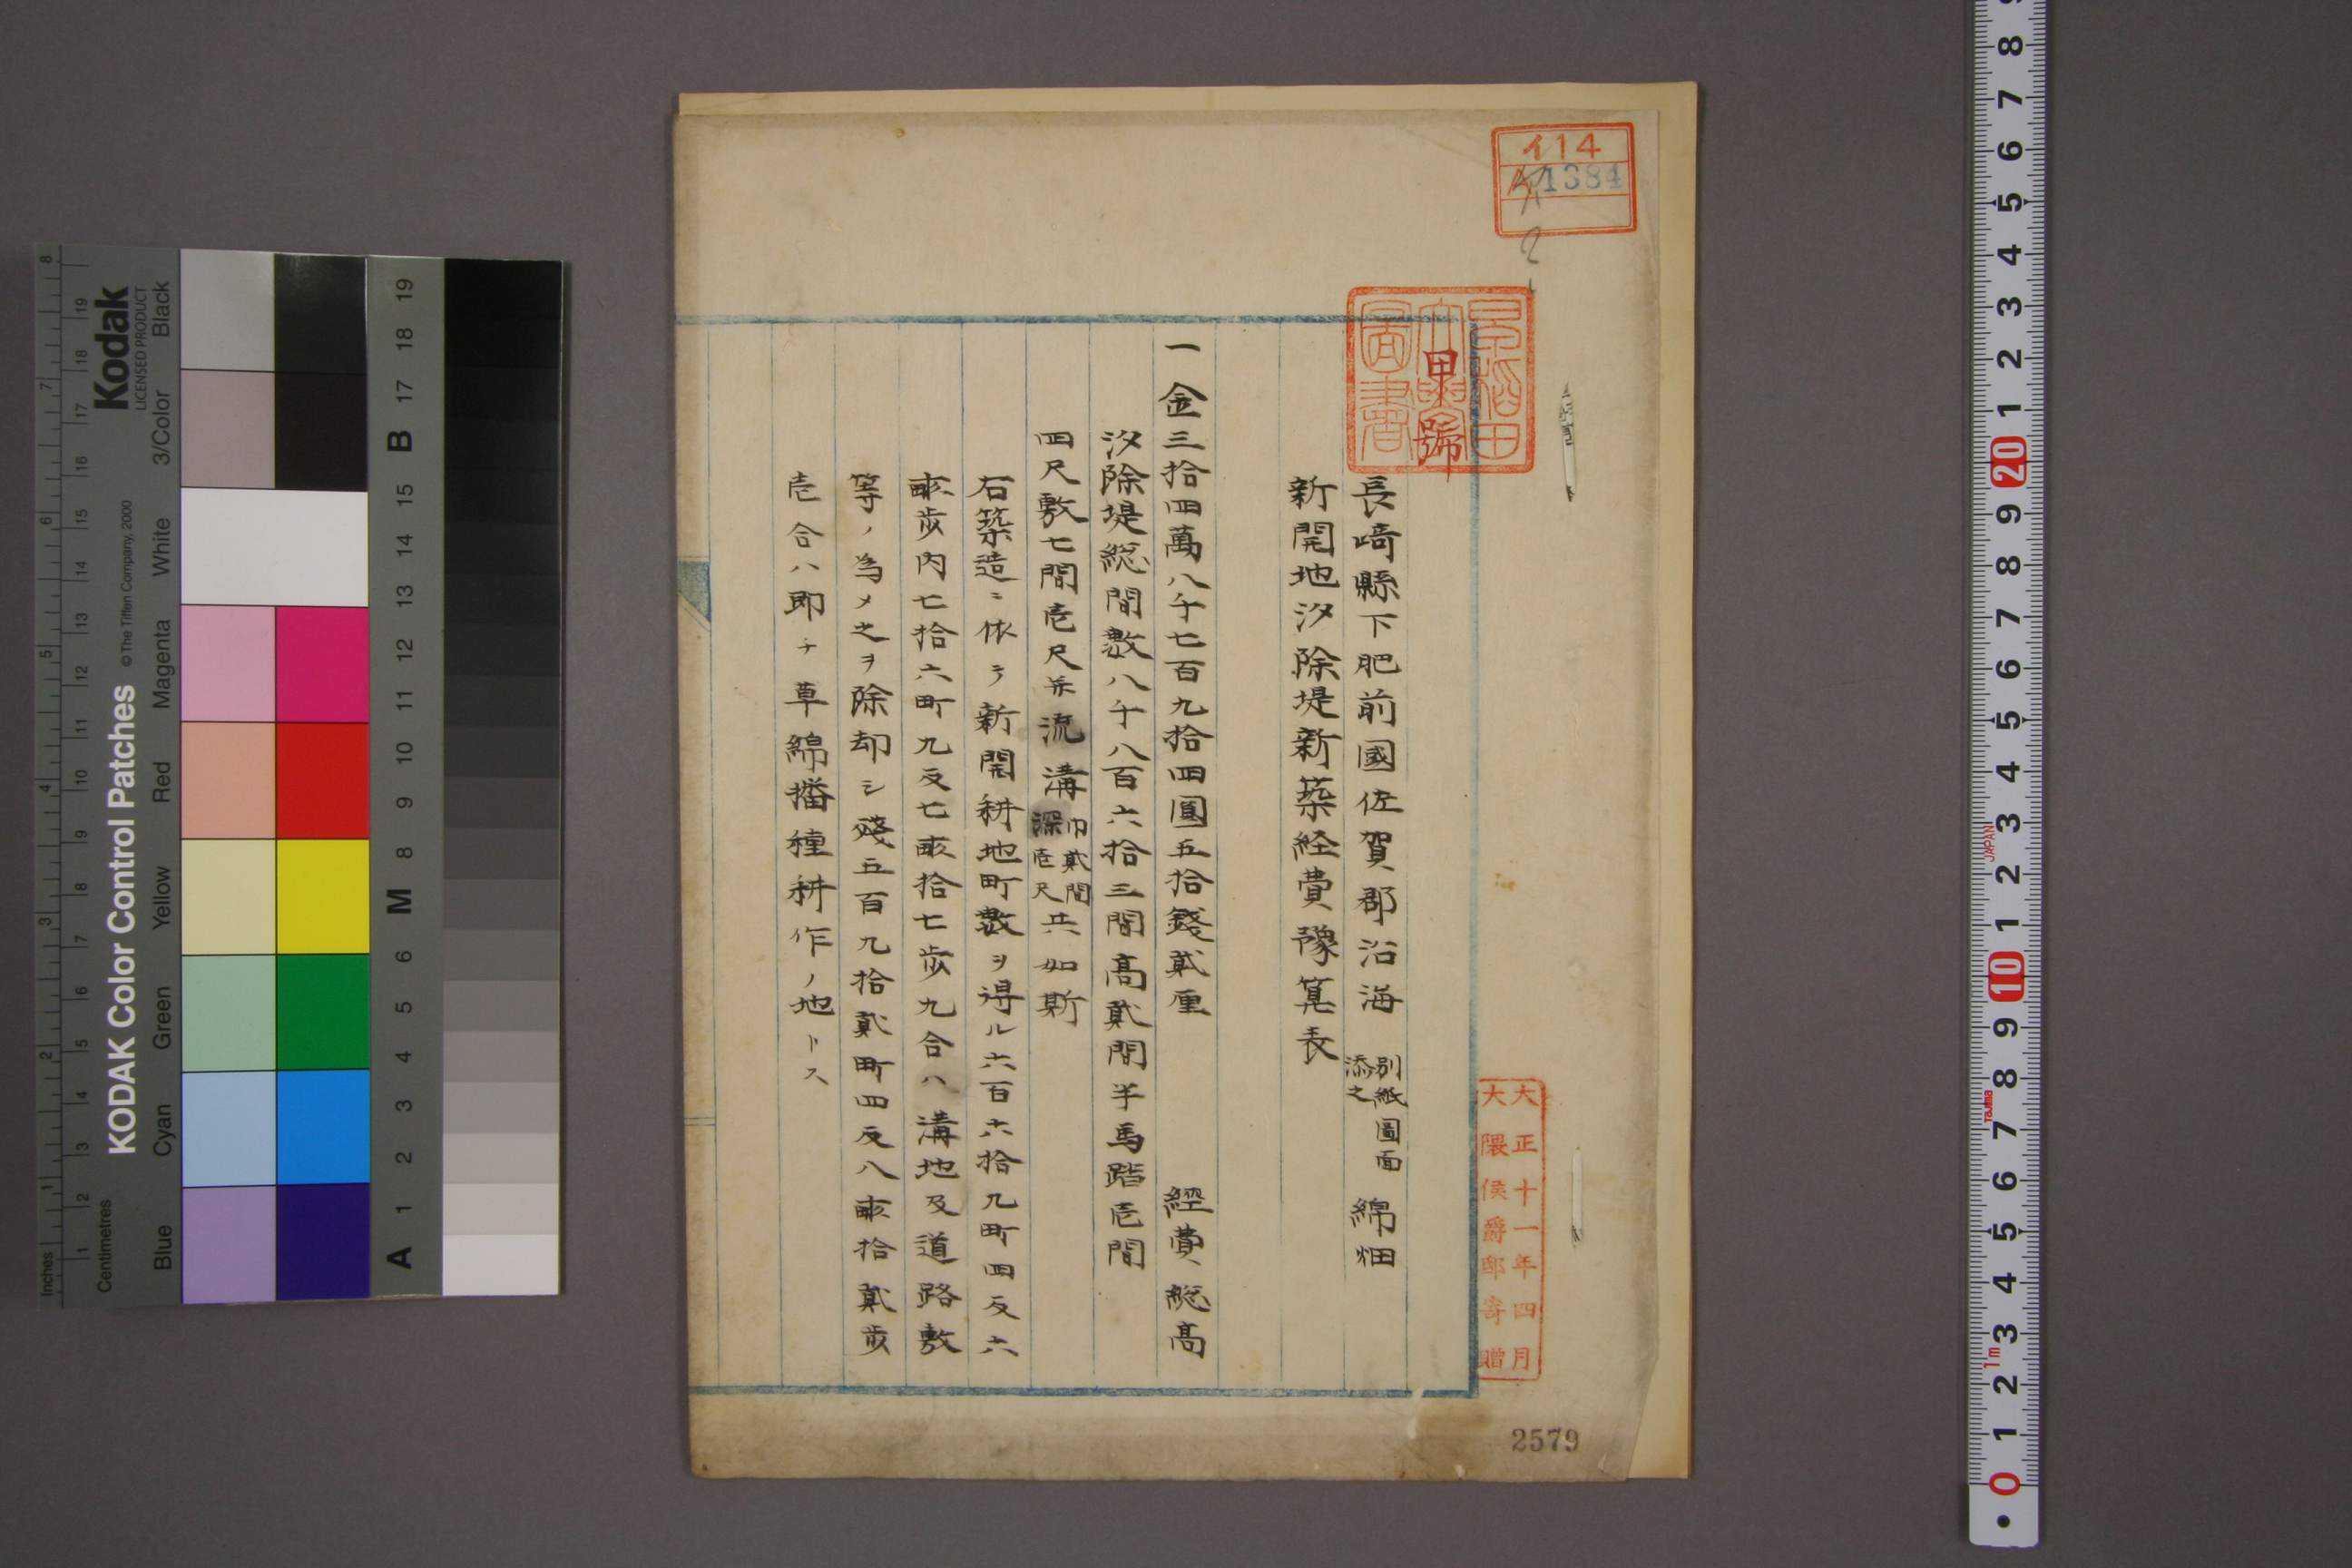 イ14
A1384
2
早稲田
大學
圖書
甲號
長﨑縣下肥前國佐賀郡沿海 別紙圖面添之 綿畑
新開地汐除堤新築経費豫筭表
一金三拾四萬八千七百九拾四圓五拾錢貳厘 經費総高
汐除堤総間数八千八百六拾三間高貳間半馬踏壱間
四尺敷七間壱尺并流溝巾貳間深壱尺共如斯
石築造ニ依ラ新開耕地町数ヲ得ル六百六拾九町四反六
畝歩内七拾六町九反七畝拾七歩九合ハ溝地及道路敷
等ノ為メ之ヲ除却シ殘五百九拾貳町四反八畝拾貳歩
壱合ハ即チ草綿播種耕作ノ地トス
大正十一年四月
大隈侯爵邸寄贈
2579
Kodak
LICENSED PRODUCT
KODAK Color Control Patches
© The Tiffen Company, 2000
Blue Cyan Green Yellow Red Magenta White 3/Color Black
Inches 1 2 3 4 5 6 7 8
Centimetres 1 2 3 4 5 6 7 8 9 10 11 12 13 14 15 16 17 18 19
A 1 2 3 4 5 6 M 8 9 10 11 12 13 14 15 B 17 18 19
8 7 6 5 4 3 2 1 20 9 8 7 6 5 4 3 2 1 10 9 8 7 6 5 4 3 2 1 0
JAPAN
Tajima
1m